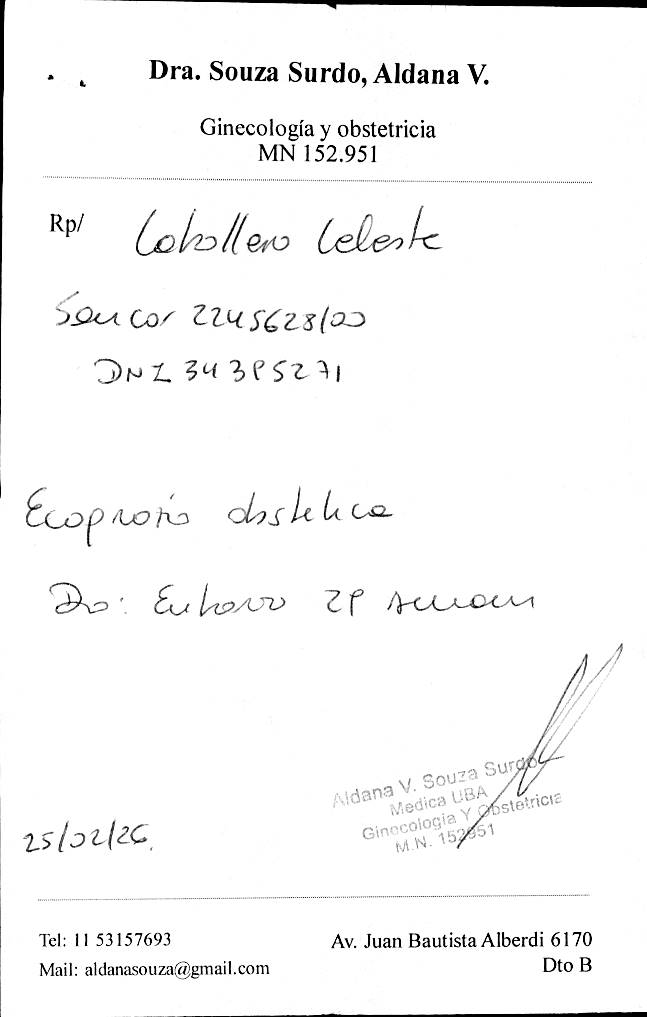 Dra. Souza Surdo, Aldana V.
Ginecología y obstetricia
MN 152.951
Rp/ Caballero Celeste
Sancor 2245628/00
DNI 34395271
Ecografía obstetrica
Dx: Embarazo 29 semanas
Aldana V. Souza Surdo
Medica UBA
Ginecologia Y Obstetricia
M.N. 152951
25/02/26.
Tel: 11 53157693
Av. Juan Bautista Alberdi 6170
Mail: aldanasouza@gmail.com
Dto B